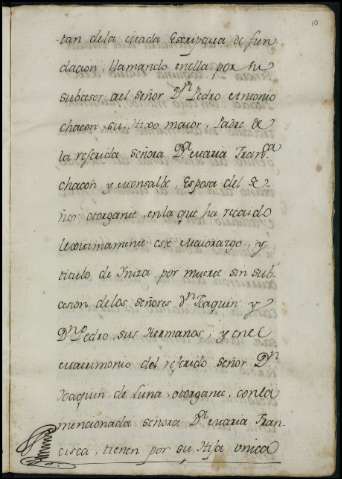 10
tan dela citada Escriptura de fun
dacion, llamando enella por su
subcesor, al Señor Dn Pedro Antonio
chacon, su Hixo maior, Padre de
la referida señora Da Maria Franca
chacon y Esposa del se
ñor otorgante, enla que ha recaido
lexitimamente este Maiorazgo, y
titulo de Yniza por muerte sin sub
cesion delos Señores Dn Joaquin y
Dn Pedro sus Hermanos; y enel
Matrimonio del referido señor Dn
Joaquin de Luna otorgante, conla
mencionada señora Da Maria Fran
cisca, tienen por su Hija unica